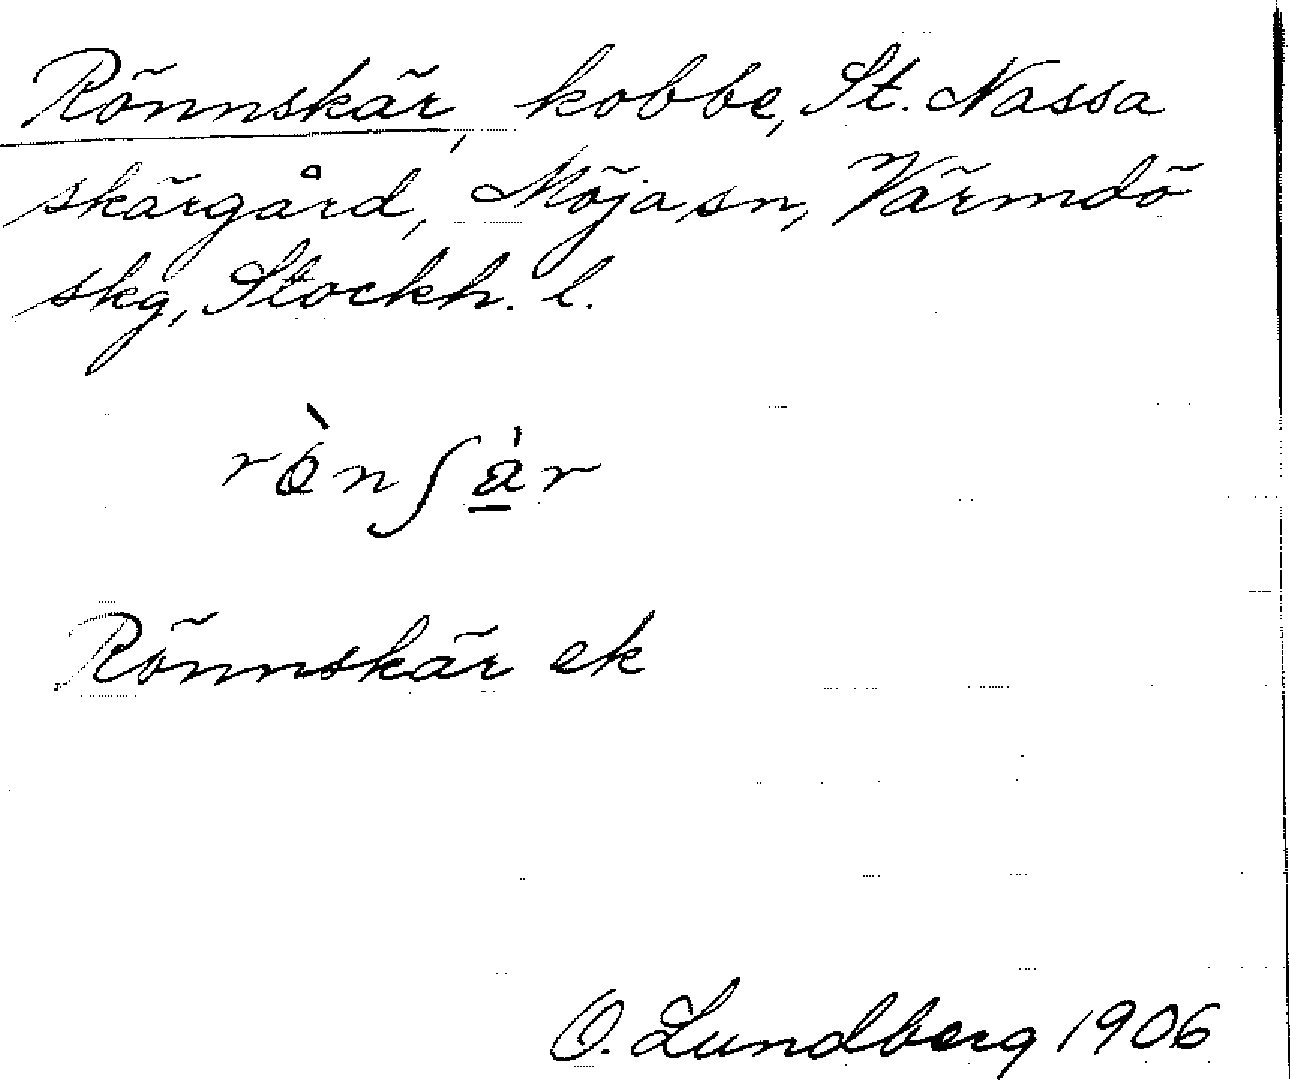 Rönnskär, kobbe, St. Nassa
skärgård, Möja sn, Värmdö
skg, Stockh. l.
rὸnʃa̠̍r
Rönnskär ek
O. Lundberg 1906